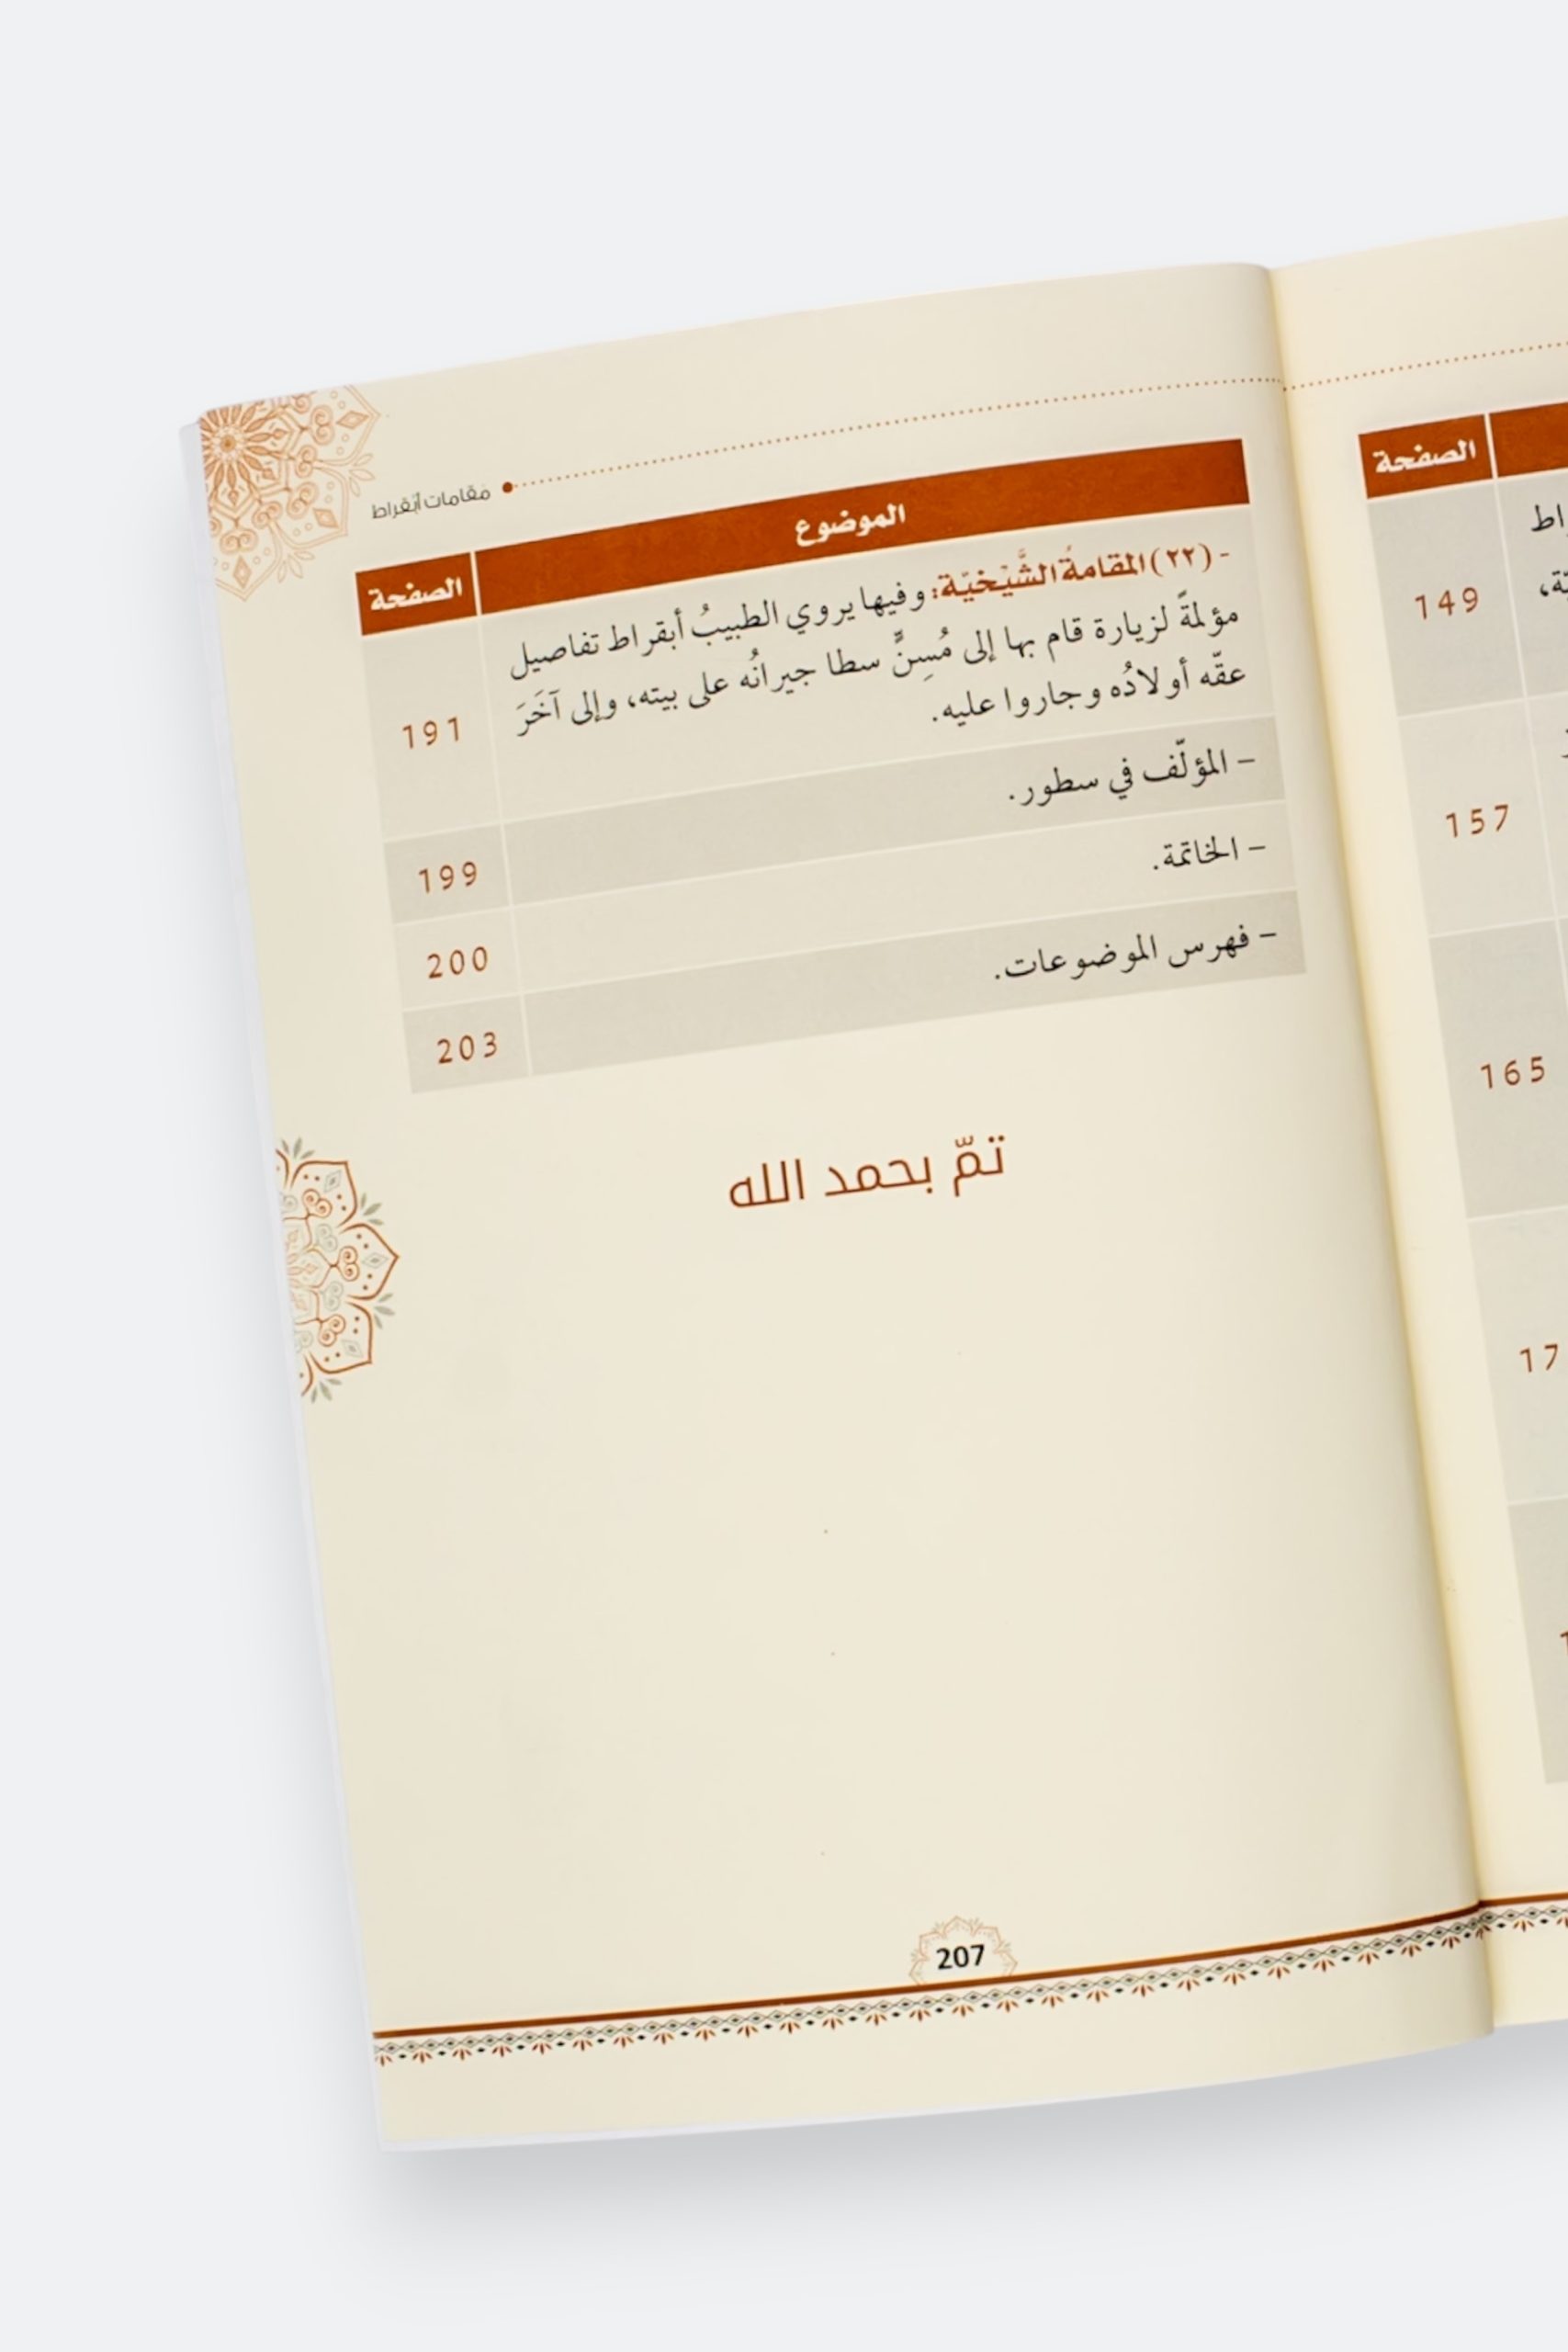 الصفحة
149
157
165
مقامات أبقراط
الموضوع
الصفحة
- (٢٢) المقامةُ الشَّيْخيّة: وفيها يروي الطبيبُ أبقراط تفاصيل
مؤلمةً لزيارة قام بها إلى مُسِنٍّ سطا جيرانُه على بيته، وإلى آخَرَ
عقّه أولادُه وجاروا عليه.
191
– المؤلّف في سطور.
199
– الخاتمة.
200
– فهرس الموضوعات.
203
تمّ بحمد الله
207